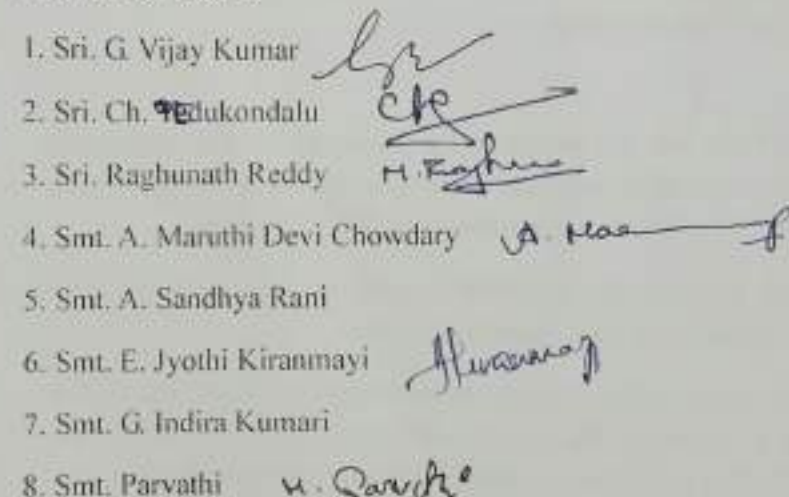 1. Sri. G. Vijay Kumar
2. Sri. Ch. Edukondalu
3. Sri. Raghunath Reddy M. Raghu
4. Smt. A. Maruthi Devi Chowdary A.
5. Smt. A. Sandhya Rani
6. Smt. E. Jyothi Kiranmayi
7. Smt. G. Indira Kumari
8. Smt. Parvathi